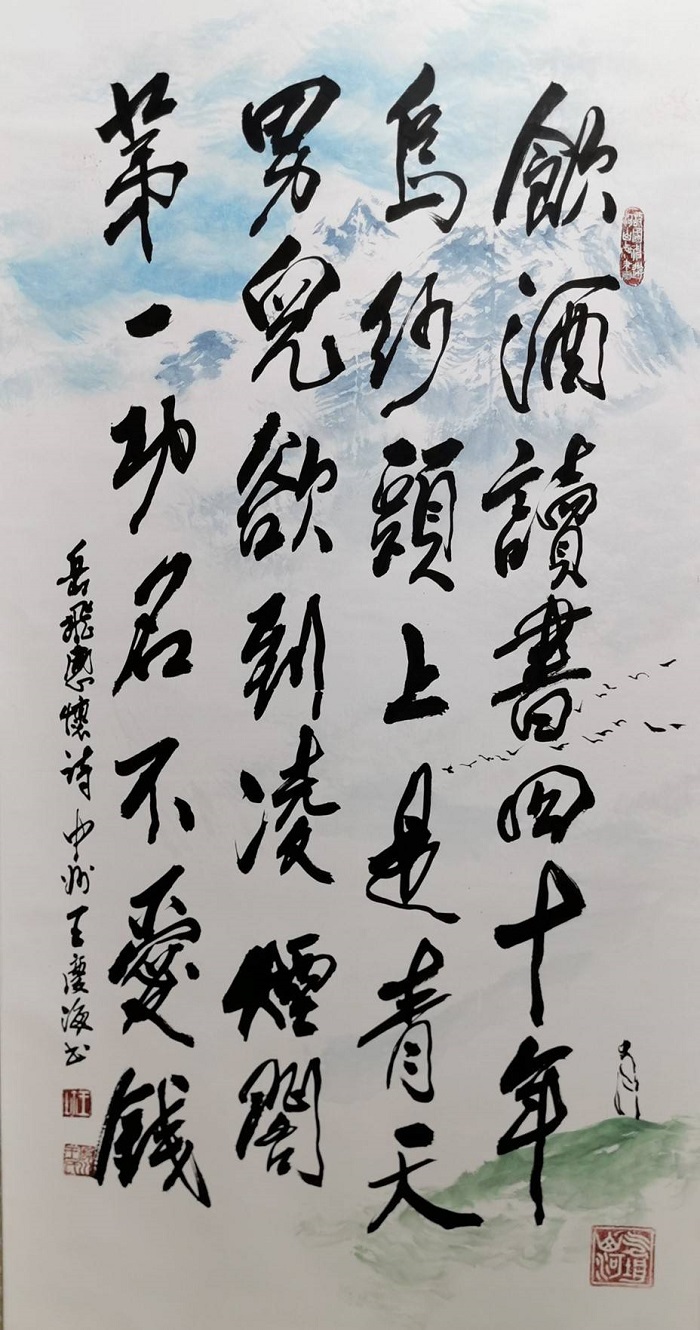 飲酒讀書四十年
烏紗頭上是青天
男兒欲到凌煙閣
第一功名不愛錢
岳飛感懷诗 中州王慶海书